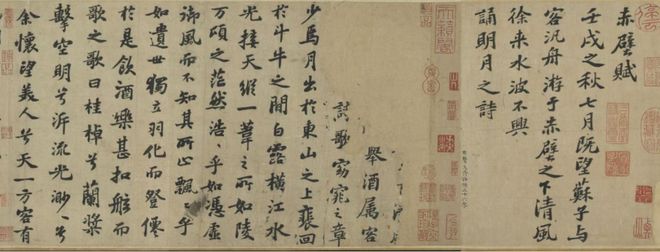 赤壁賦
壬戌之秋七月既望蘇子与
客汎舟游于赤壁之下清風
徐来水波不興
誦明月之詩
舉酒属客
歌窈窕之章
少焉月出於東山之上裵回
於斗牛之間白露橫江水
光接天縱一葦之所如陵
万頃之茫然浩〻乎如憑虛
御風而不知其所止飄〻乎
如遺世獨立羽化而登僊
於是飲酒樂甚扣舷而
歌之歌曰桂棹兮蘭槳
擊空明兮泝流光渺〻兮
余懷望美人兮天一方客有